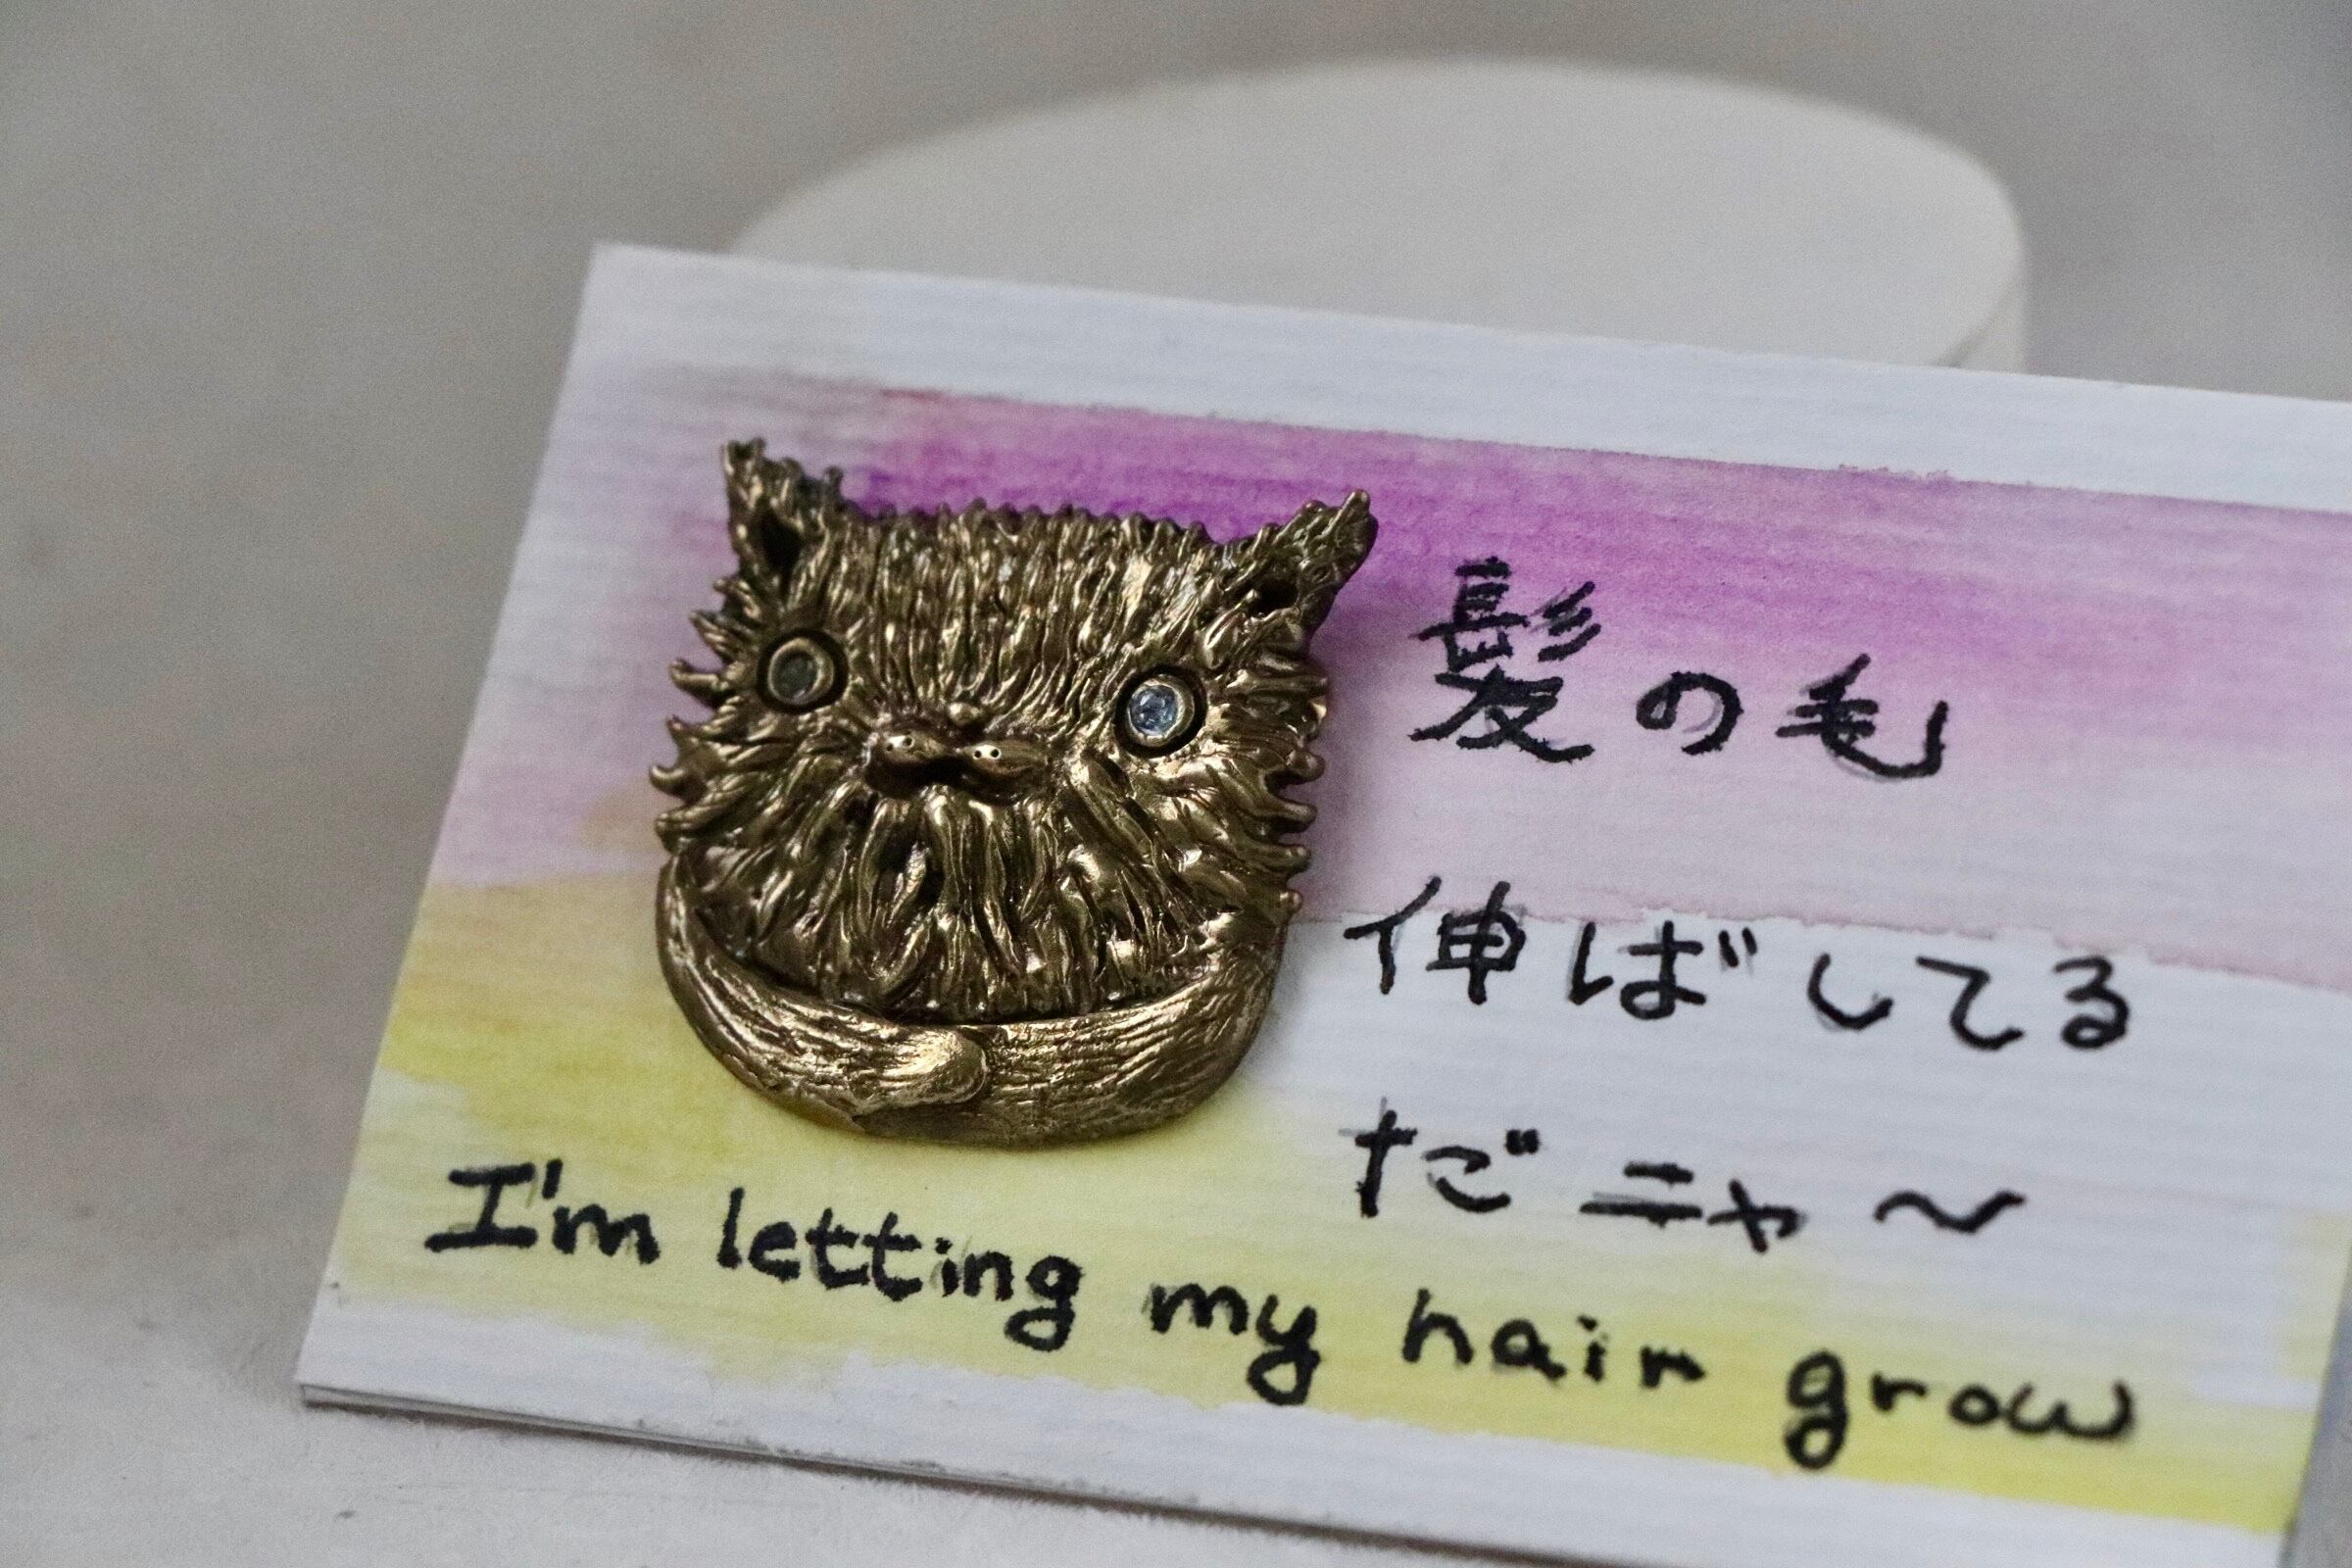 髪の毛
伸ばしてる
だニャ～
I'm letting my hair grow